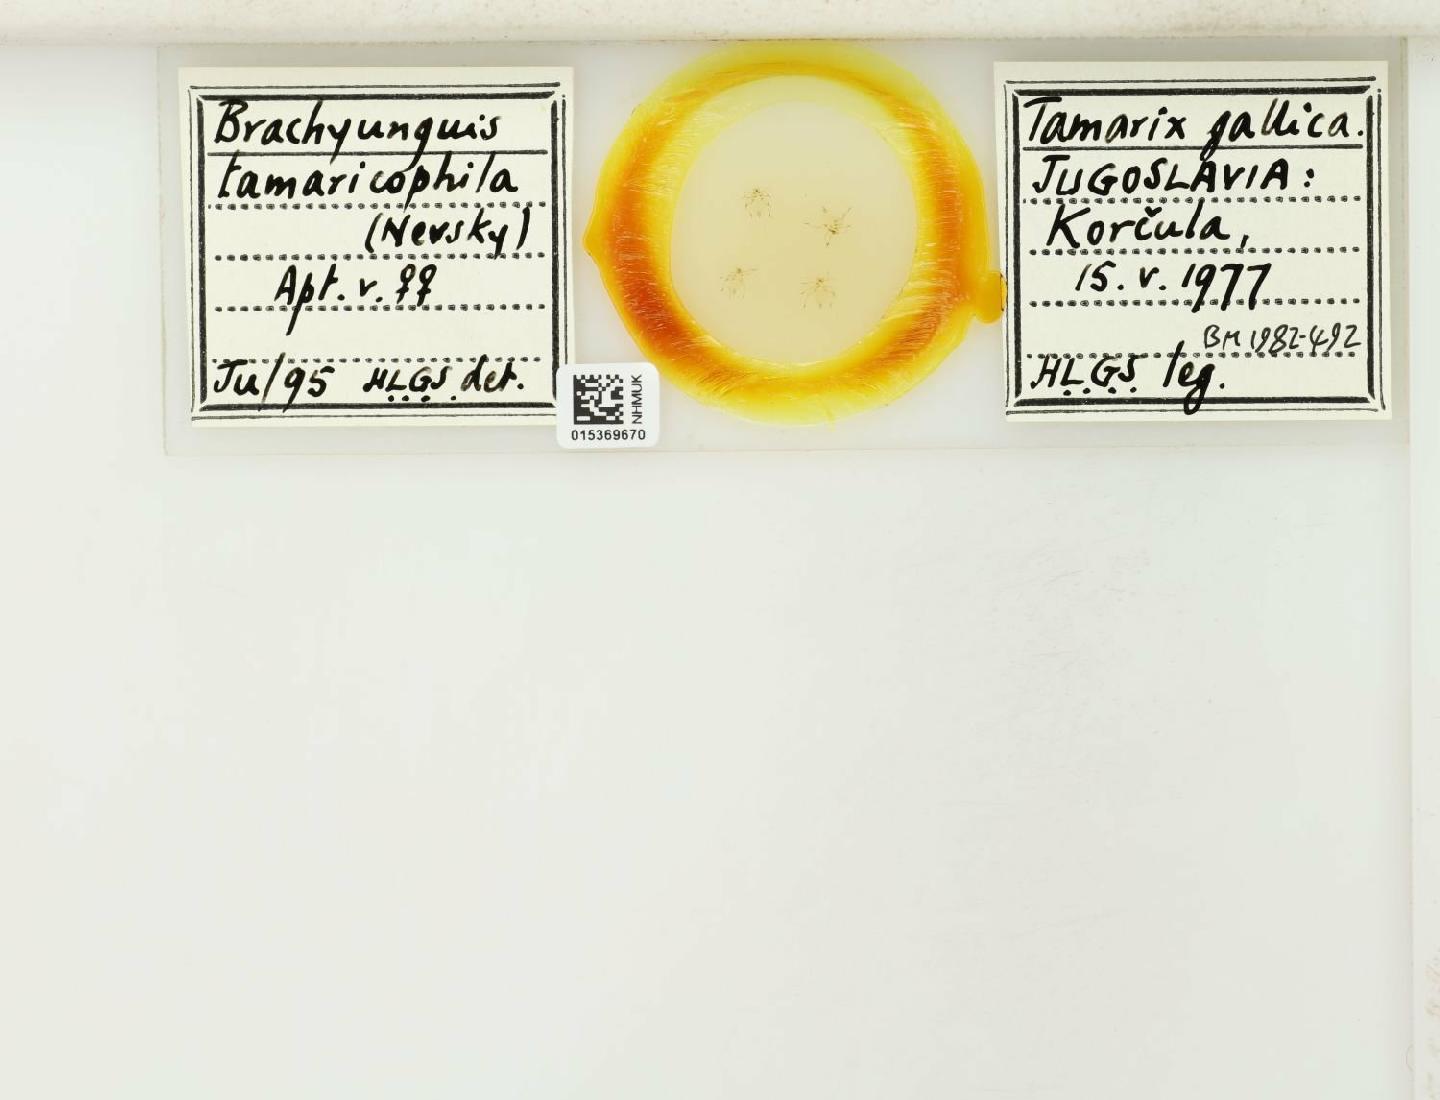 Brachyunguis
tamaricophila
(Nevsky)
Apt. v. ♀♀
Ju/95 H.L.G.S. det.
NHMUK
015369670
Tamarix gallica.
JUGOSLAVIA:
Korčula,
15. v. 1977
BM 1982-492
H.L.G.S. leg.